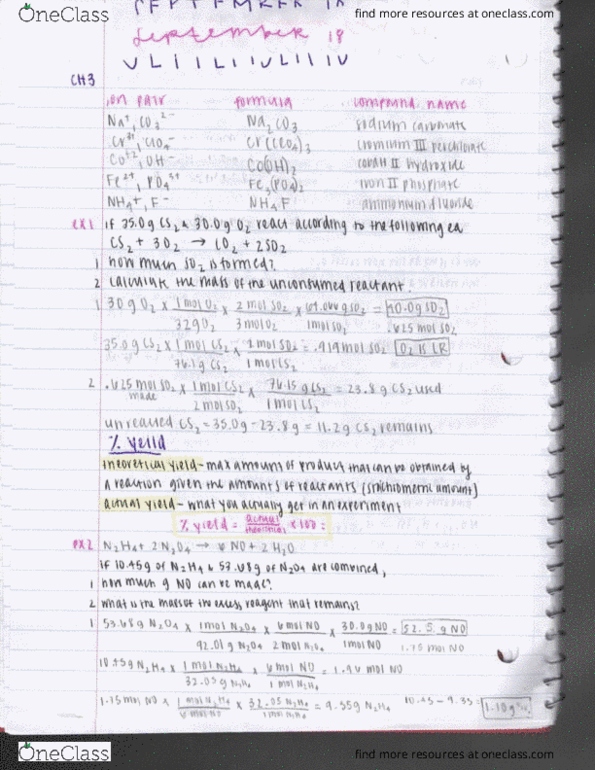 OneClass
find more resources at oneclass.com
SEPTEMBER 18
September 18
CH3
ion pair formula compound name
Na⁺, CO₃²⁻ Na₂CO₃ sodium carbonate
Cr³⁺, ClO₄⁻ Cr(ClO₄)₃ chromium III perchlorate
Co⁺², OH⁻ Co(OH)₂ cobalt II hydroxide
Fe²⁺, PO₄³⁻ Fe₃(PO₄)₂ iron II phosphate
NH₄⁺, F⁻ NH₄F ammonium fluoride
ex1 if 35.0g CS₂ & 30.0g O₂ react according to the following eq
CS₂ + 3O₂ → CO₂ + 2SO₂
1 how much SO₂ is formed?
2 calculate the mass of the unconsumed reactant.
1 30g O₂ × 1mol O₂ × 2mol SO₂ × 64.066g SO₂ = 40.0g SO₂
32g O₂ 3mol O₂ 1mol SO₂ .625 mol SO₂
35.0g CS₂ × 1mol CS₂ × 2mol SO₂ = .919mol SO₂ O₂ is LR
76.1g CS₂ 1mol CS₂
2 .625mol SO₂ × 1mol CS₂ × 76.15g CS₂ = 23.8g CS₂ used
made 2mol SO₂ 1mol CS₂
unreacted CS₂ = 35.0g - 23.8g = 11.2g CS₂ remains
% yeild
theoretical yield - max amount of product that can be obtained by
a reaction given the amounts of reactants (stoichiometric amount)
actual yield - what you actually get in an experiment
% yield = actual/theoretical × 100 =
ex2 N₂H₄ + 2N₂O₄ → 6NO + 2H₂O
if 10.45g of N₂H₄ & 53.68g of N₂O₄ are combined,
1 how much g NO can be made?
2 what is the mass of the excess reagent that remains?
1 53.68g N₂O₄ × 1mol N₂O₄ × 6mol NO × 30.0g NO = 52.5g NO
92.01g N₂O₄ 2mol N₂O₄ 1mol NO 1.75 mol NO
10.45g N₂H₄ × 1mol N₂H₄ × 6mol NO = 1.96 mol NO
32.05g N₂H₄ 1mol N₂H₄
1.75mol NO × 1mol N₂H₄ × 32.05 N₂H₄ = 9.35g N₂H₄ 10.45-9.35= 1.10g
6mol NO 1mol N₂H₄
OneClass
find more resources at oneclass.com